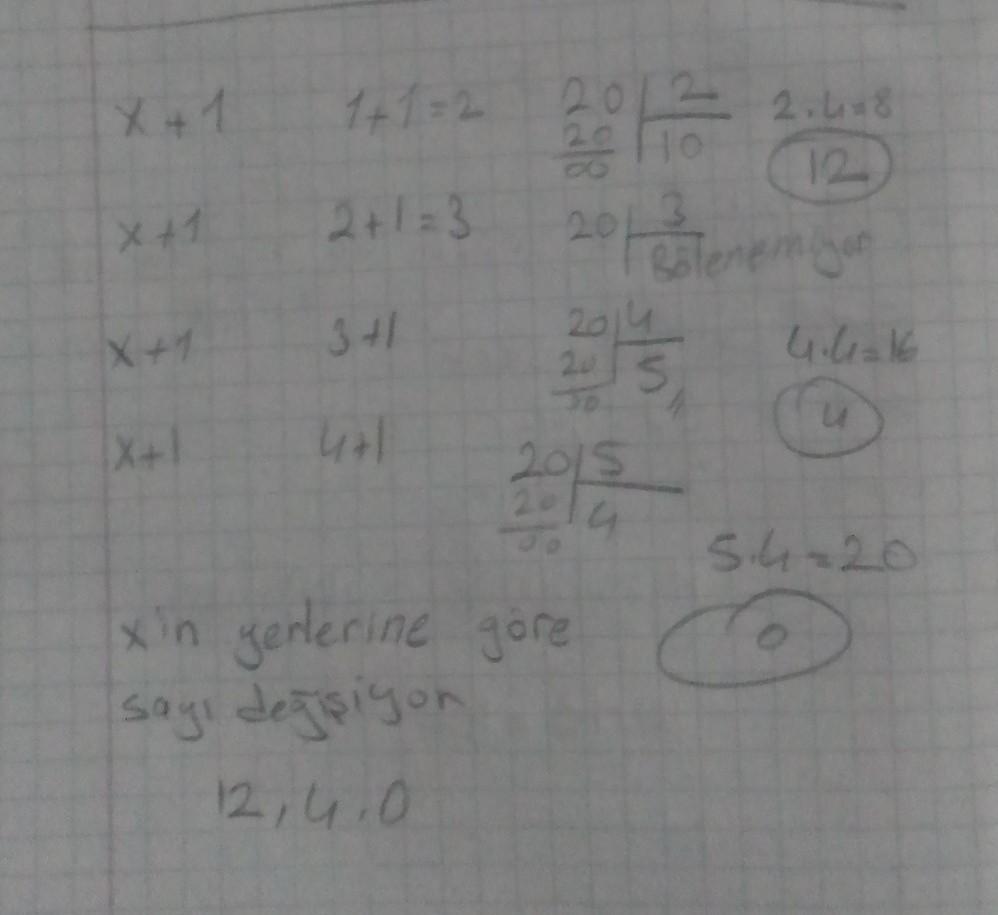 x+1 1+1=2 20 2 2.4=8
20 10 12
00
x+1 2+1=3 20 3
Bölenemiyor
x+1 3+1 20 4 4.4=16
20 5 4
00
x+1 4+1 20 5
20 4
00 5.4=20
x'in yerlerine göre 0
sayı değişiyor
12,4,0